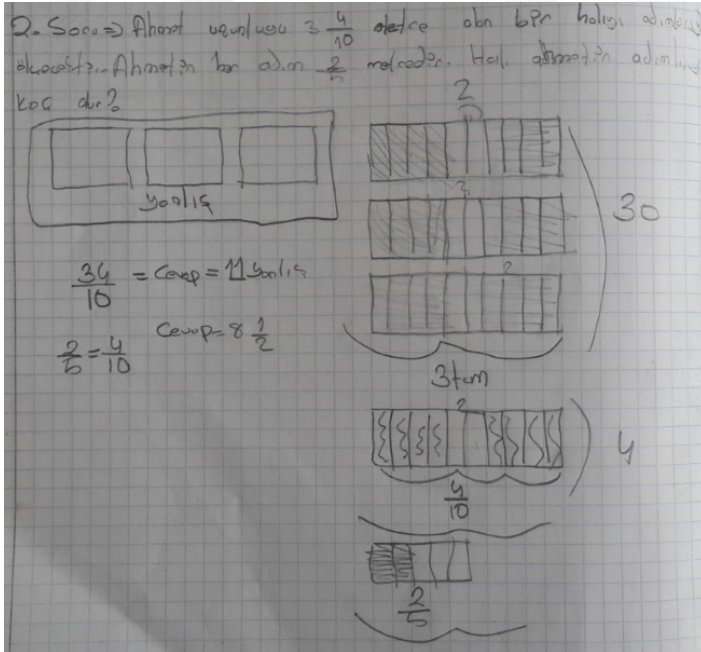 2. Soru ⇒ Ahmet uzunluğu 3 4/10 metre olan bir halıyı adımlarıy
ölçecektir. Ahmet'in bir adım 2/5 metredir. Halı adımlı
kaç dır?
yanlış
34/10 = Cevap = 11 yanlış
2/5 = 4/10
Cevap = 8 1/2
2
2
2
30
3 tam
2
4
4/10
2/5